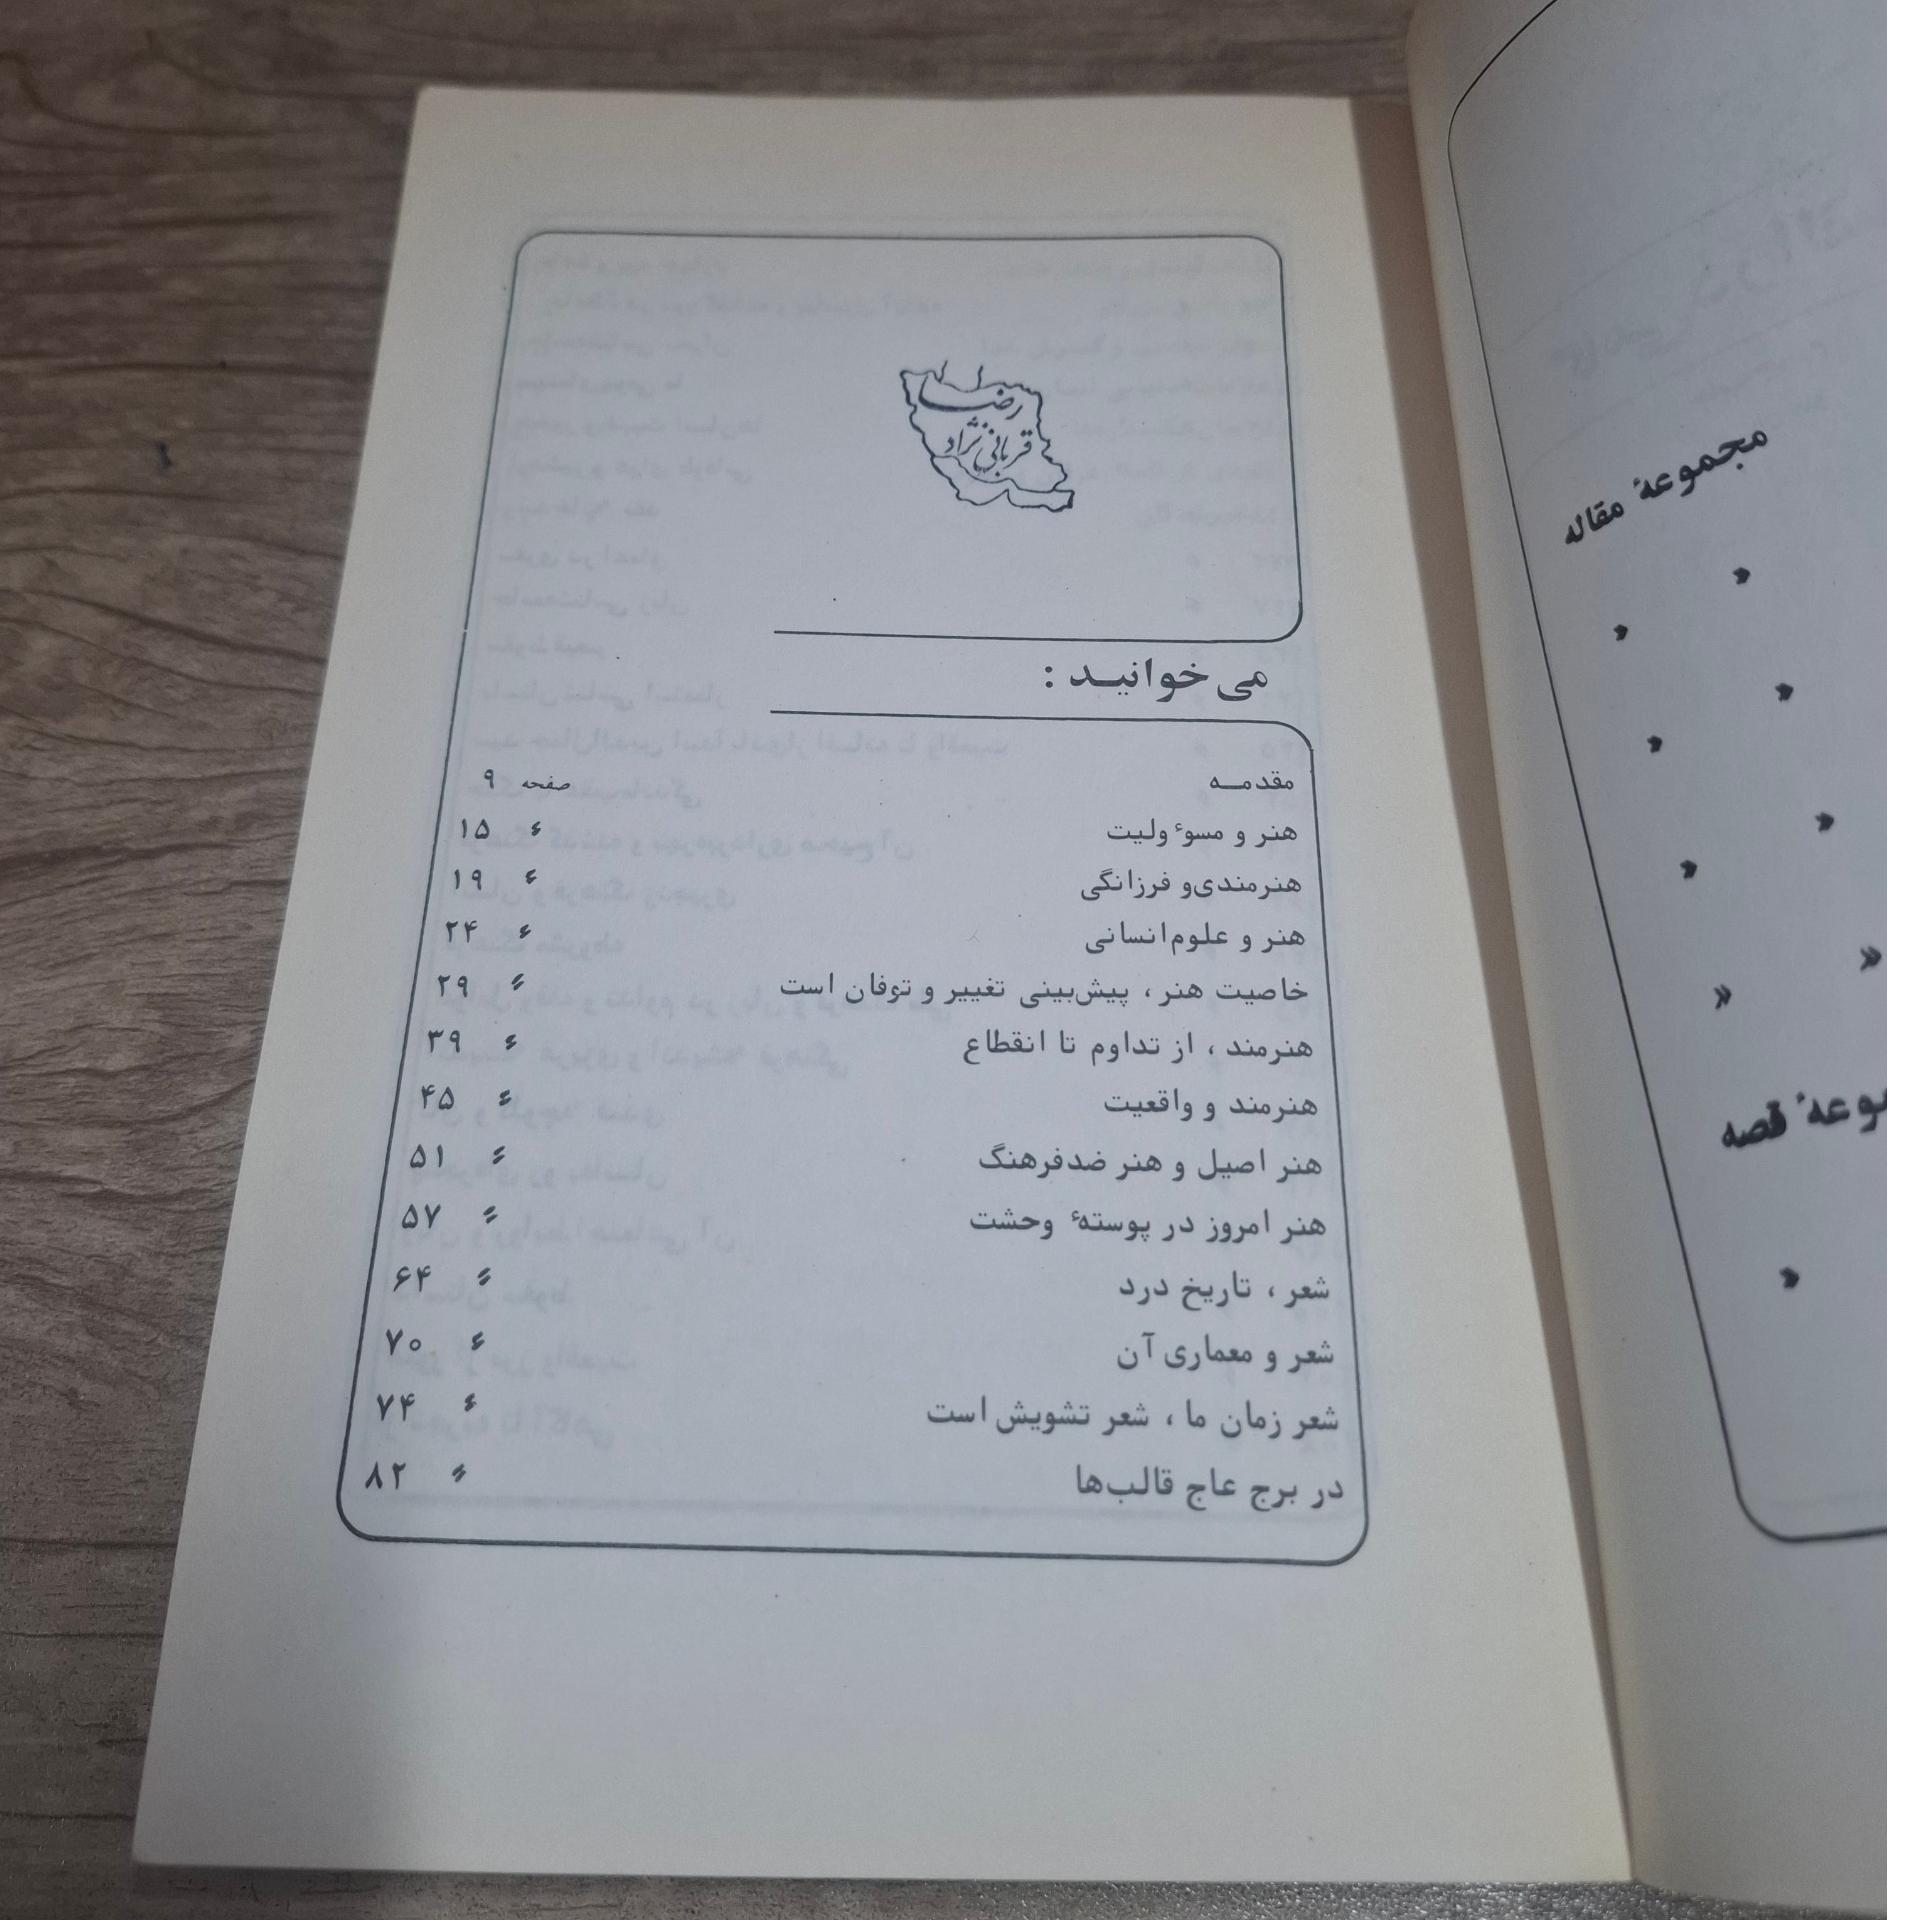 رضا
قربانی‌نژاد
می‌خوانید :
مقدمــه صفحه ۹
هنر و مسوٴولیت ٴ ۱۵
هنرمندی‌و فرزانگی ٴ ۱۹
هنر و علوم‌انسانی ٴ ۲۴
خاصیت هنر ، پیش‌بینی تغییر و توفان است ٴ ۲۹
هنرمند ، از تداوم تا انقطاع ٴ ۳۹
هنرمند و واقعیت ٴ ۴۵
هنر اصیل و هنر ضدفرهنگ ٴ ۵۱
هنر امروز در پوستهٔ وحشت ٴ ۵۷
شعر ، تاریخ درد ٴ ۶۴
شعر و معماری آن ٴ ۷۰
شعر زمان ما ، شعر تشویش است ٴ ۷۴
در برج عاج قالب‌ها ٴ ۸۲
مجموعهٔ مقاله
«
«
«
«
«
«
«
«
قصه
«